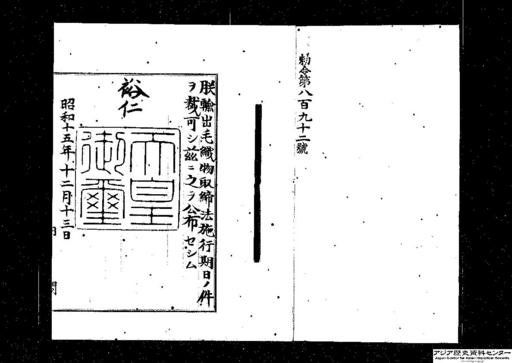 勅令第八百九十二號
朕輸出毛織物取締法施行期日ノ件
ヲ裁可シ茲ニ之ヲ公布セシム
裕仁
天皇御璽
昭和十五年十二月十三日
アジア歴史資料センター
Japan Center for Asian Historical Records